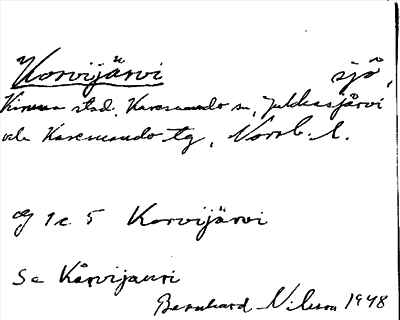 Korvijärvi sjö,
Kiruna stad, Karesuando sn, Jukkasjärvi
och Karesuando tg, Norrb. l.
1e 5 Korvijärvi
Se Kårvijauri
Bernhard Nilsson 1948